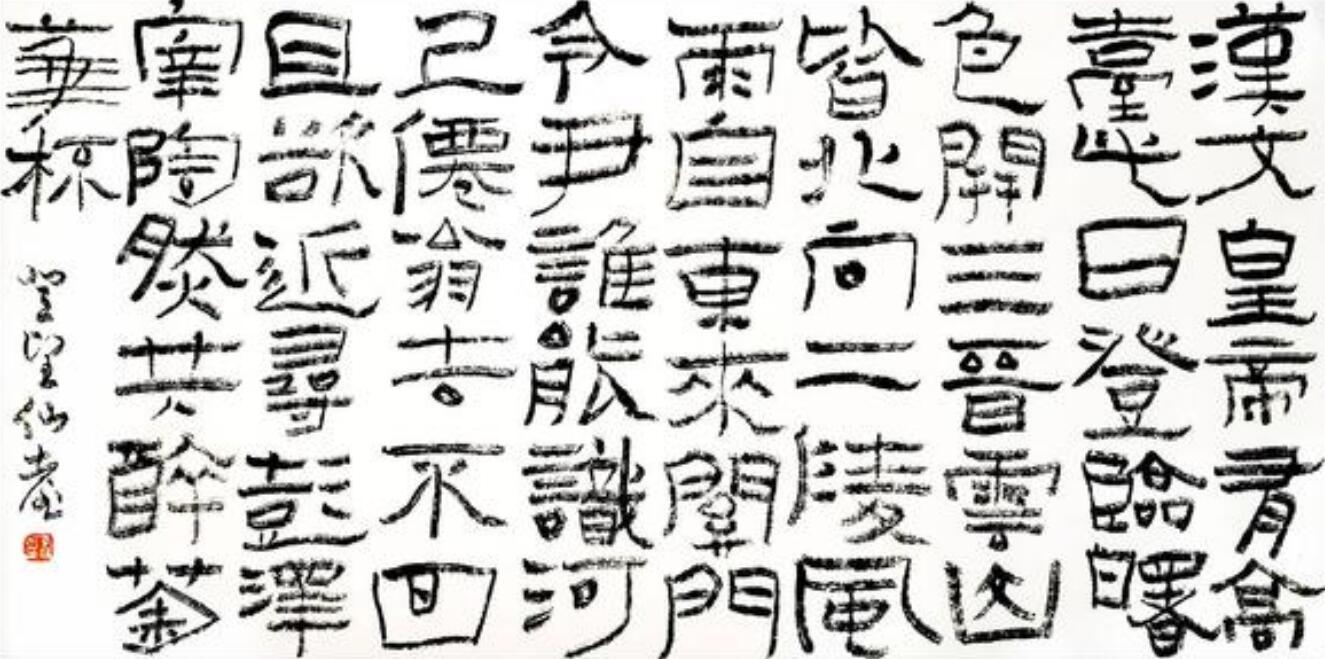 漢文皇帝有高
臺此日登臨曙
色開三晉雲山
皆北向二陵風
雨自東來關門
令尹誰能識河
上僊翁去不回
且欲近尋彭澤
宰陶然共醉菊
華杯
登望仙臺